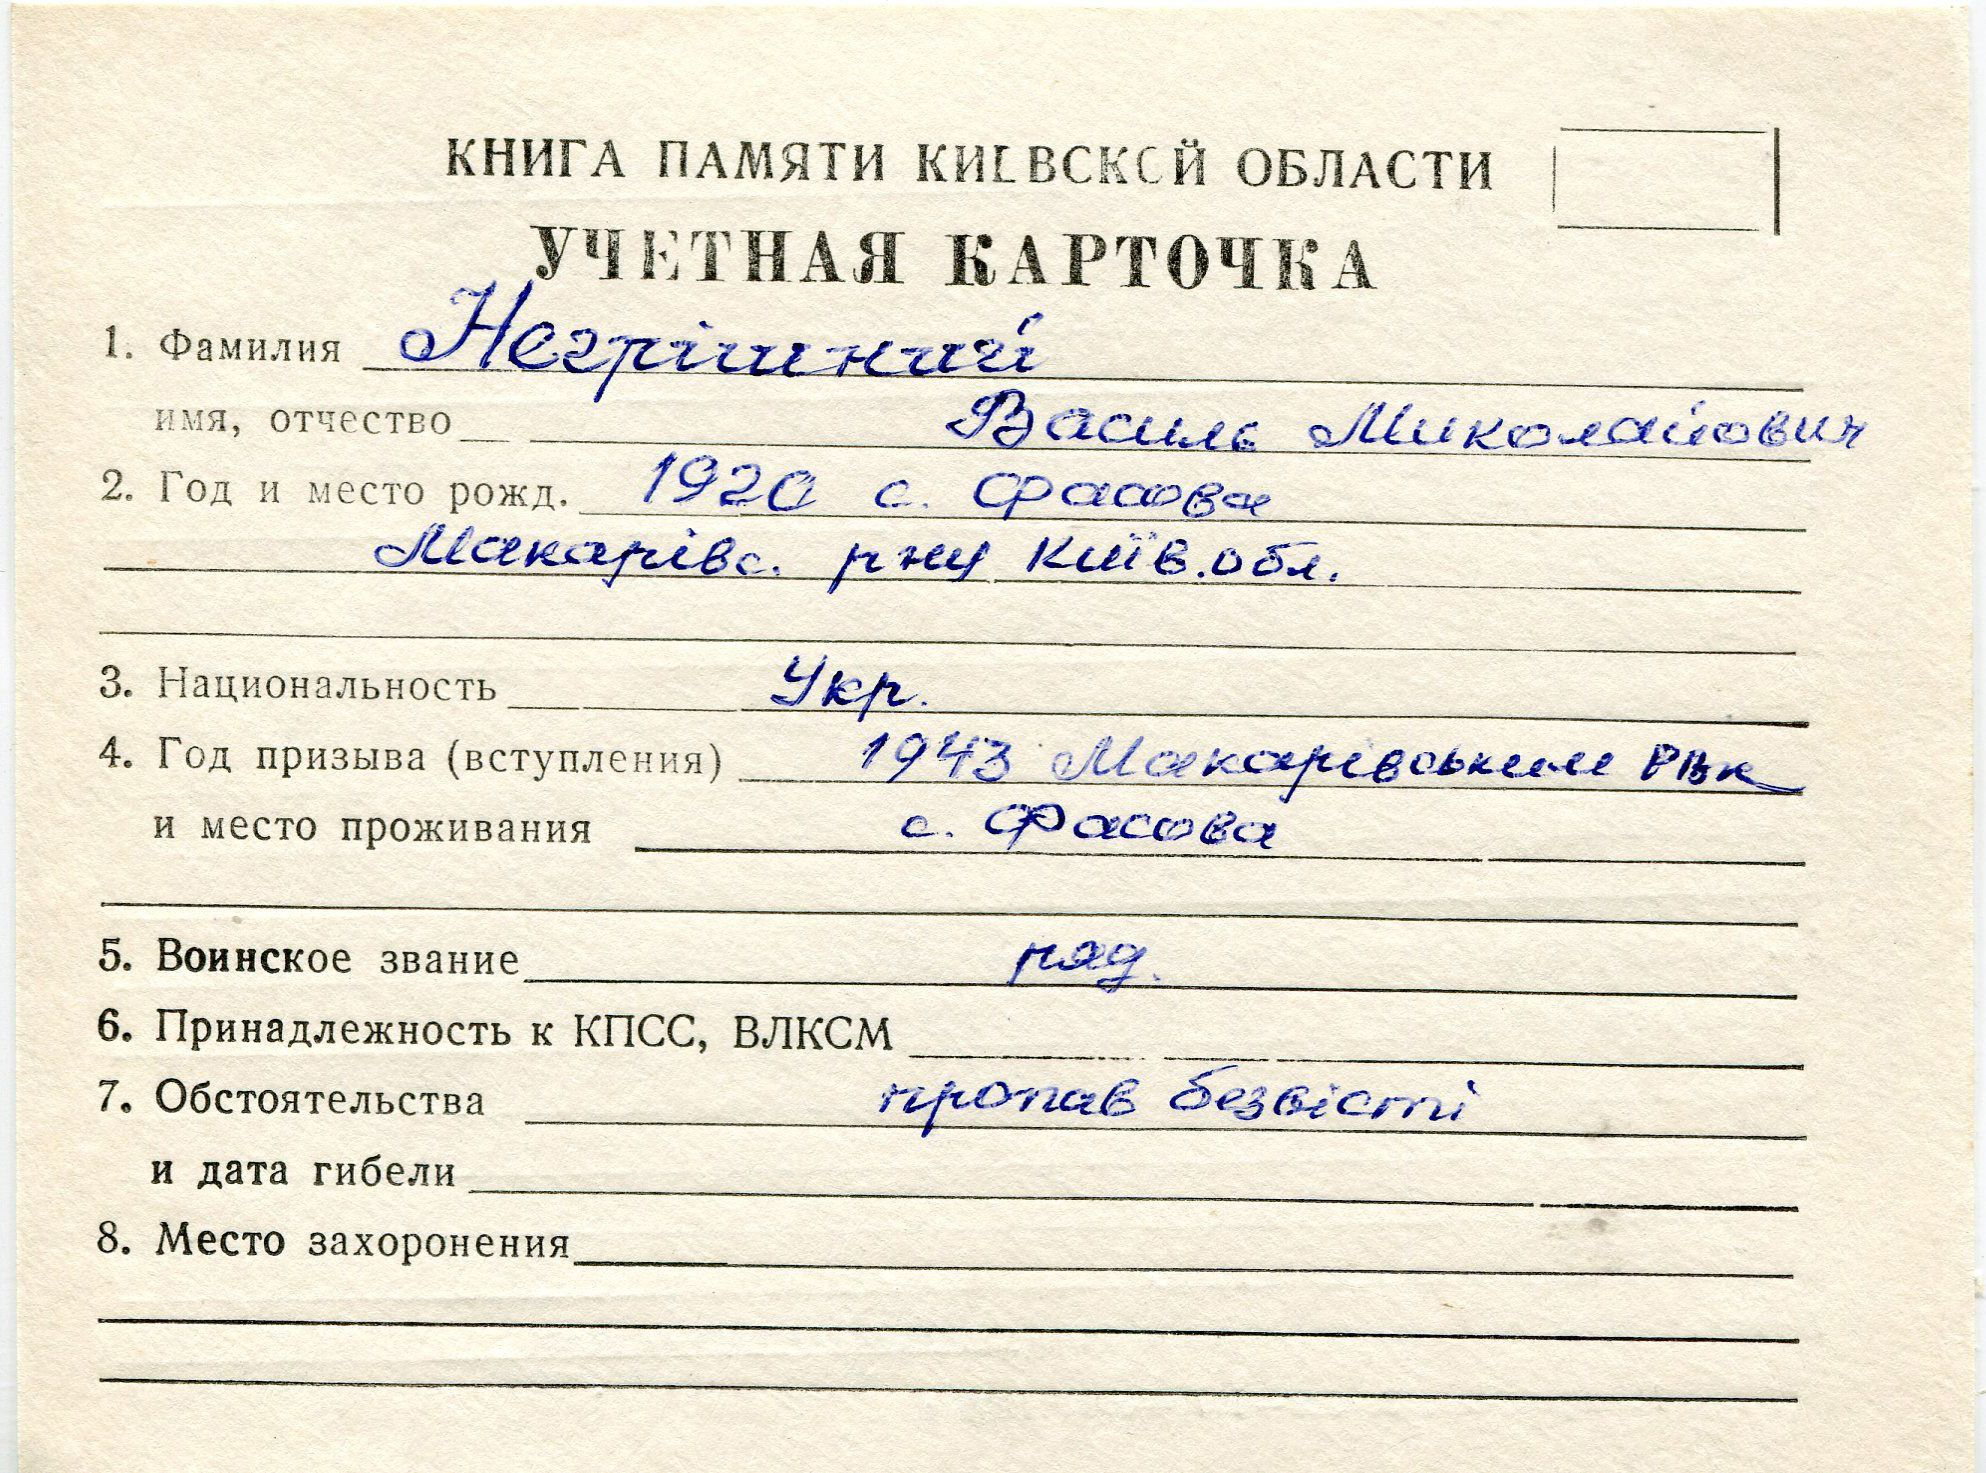 КНИГА ПАМЯТИ КИЕВСКОЙ ОБЛАСТИ
УЧЕТНАЯ КАРТОЧКА
1. Фамилия Негрішний
имя, отчество Василь Миколайович
2. Год и место рожд. 1920 с. Фасова
Макарівс. рну Київ. обл.
3. Национальность Укр.
4. Год призыва (вступления) 1943 Макарівським РВК
и место проживания с. Фасова
5. Воинское звание ряд.
6. Принадлежность к КПСС, ВЛКСМ
7. Обстоятельства пропав безвісті
и дата гибели
8. Место захоронения